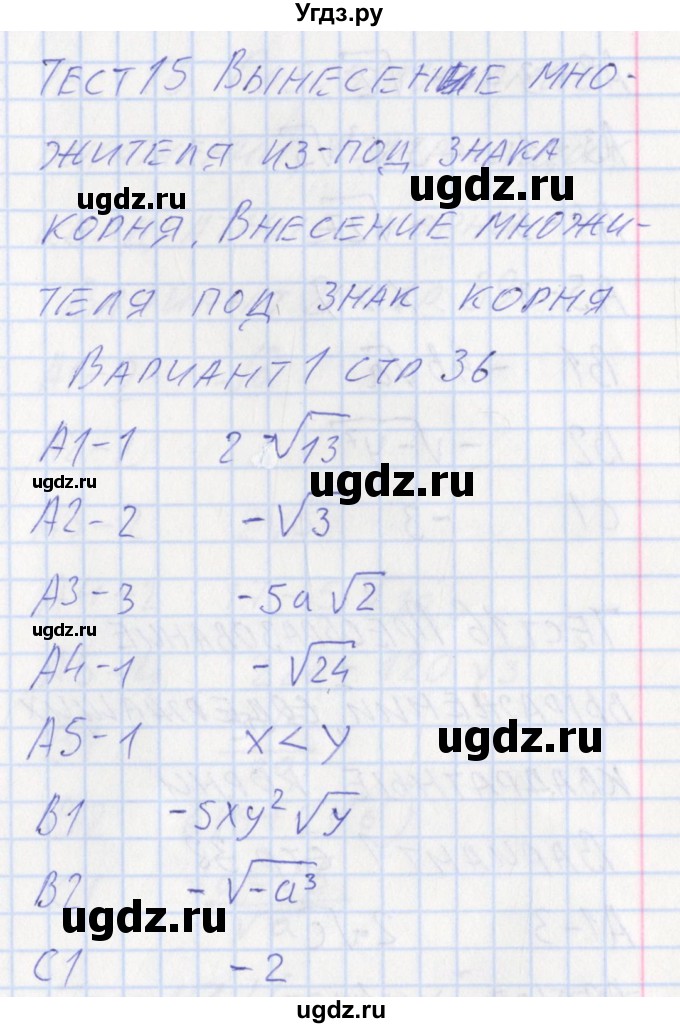 Угдз.ру
ТЕСТ 15 ВЫНЕСЕНИЕ МНО-
ЖИТЕЛЯ ИЗ-ПОД ЗНАКА
ugdz.ru ugdz.ru
КОРНЯ. ВНЕСЕНИЕ МНОЖИ-
ТЕЛЯ ПОД ЗНАК КОРНЯ
ВАРИАНТ 1 СТР 36
А1-1 2√13
ugdz.ru ugdz.ru
А2-2 -√3
А3-3 -5a√2
ugdz.ru
А4-1 -√24
А5-1 x<y
ugdz.ru
В1 -5xy²√y
В2 -√-a³
ugdz.ru
С1 -2
ugdz.ru